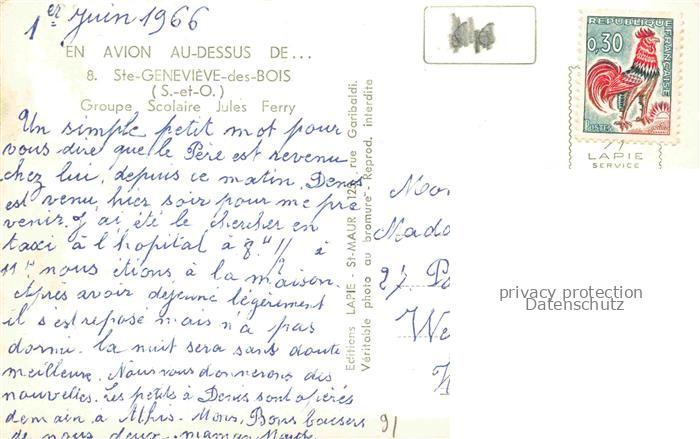 1er Juin 1966
EN AVION AU-DESSUS DE...
8. Ste-GENEVIÈVE-des-BOIS
(S.-et-O.)
Groupe Scolaire Jules Ferry
Un simple petit mot pour
vous dire que le Père est revenu
chez lui, depuis ce matin. Denis
est venu hier soir pour me pré
venir. J'ai été le chercher en
taxi à l'hopital à
11h nous étions à la maison.
Après avoir dejeuné légèrement
il s'est reposé mais n'a pas
dormi. la nuit sera sans doute
meilleure. Nous vous donnerons des
nouvelles. Les petits à Denis sont opérés
demain à Athis-Mons. Bons baisers
de nous deux. maman
Editions LAPIE - St-MAUR - 123, rue Garibaldi.
Véritable photo au bromure - Reprod. interdite
REPUBLIQUE FRANÇAISE
0,30
POSTES
LAPIE
SERVICE
Mon
Mada
27
We
privacy protection
Datenschutz
91